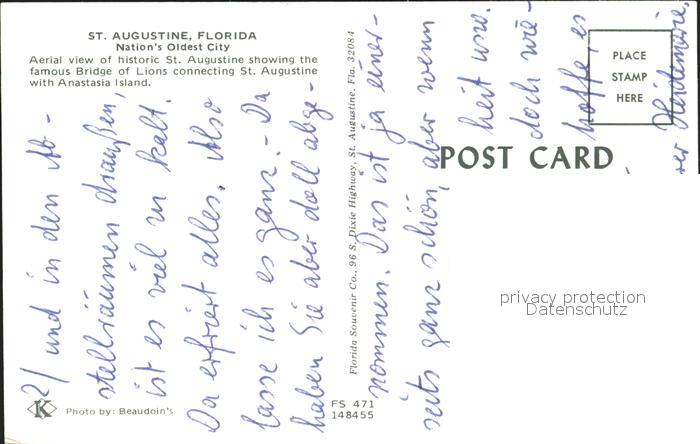 ST. AUGUSTINE, FLORIDA
Nation's Oldest City
Aerial view of historic St. Augustine showing the
famous Bridge of Lions connecting St. Augustine
with Anastasia Island.
2/ und in den Ab-
stellräumen draußen,
ist es viel zu kalt.
Da erfriert alles. Also
lasse ich es ganz. - Da
haben Sie aber doll abge-
nommen. Das ist ja einer-
seits ganz schön, aber wenn
heit usw.
doch wie-
hoffe, es
rer Heidemarie.
Florida Souvenir Co., 96 S. Dixie Highway, St. Augustine, Fla. 32084
PLACE
STAMP
HERE
POST CARD
privacy protection
Datenschutz
K
Photo by: Beaudoin's
FS 471
148455